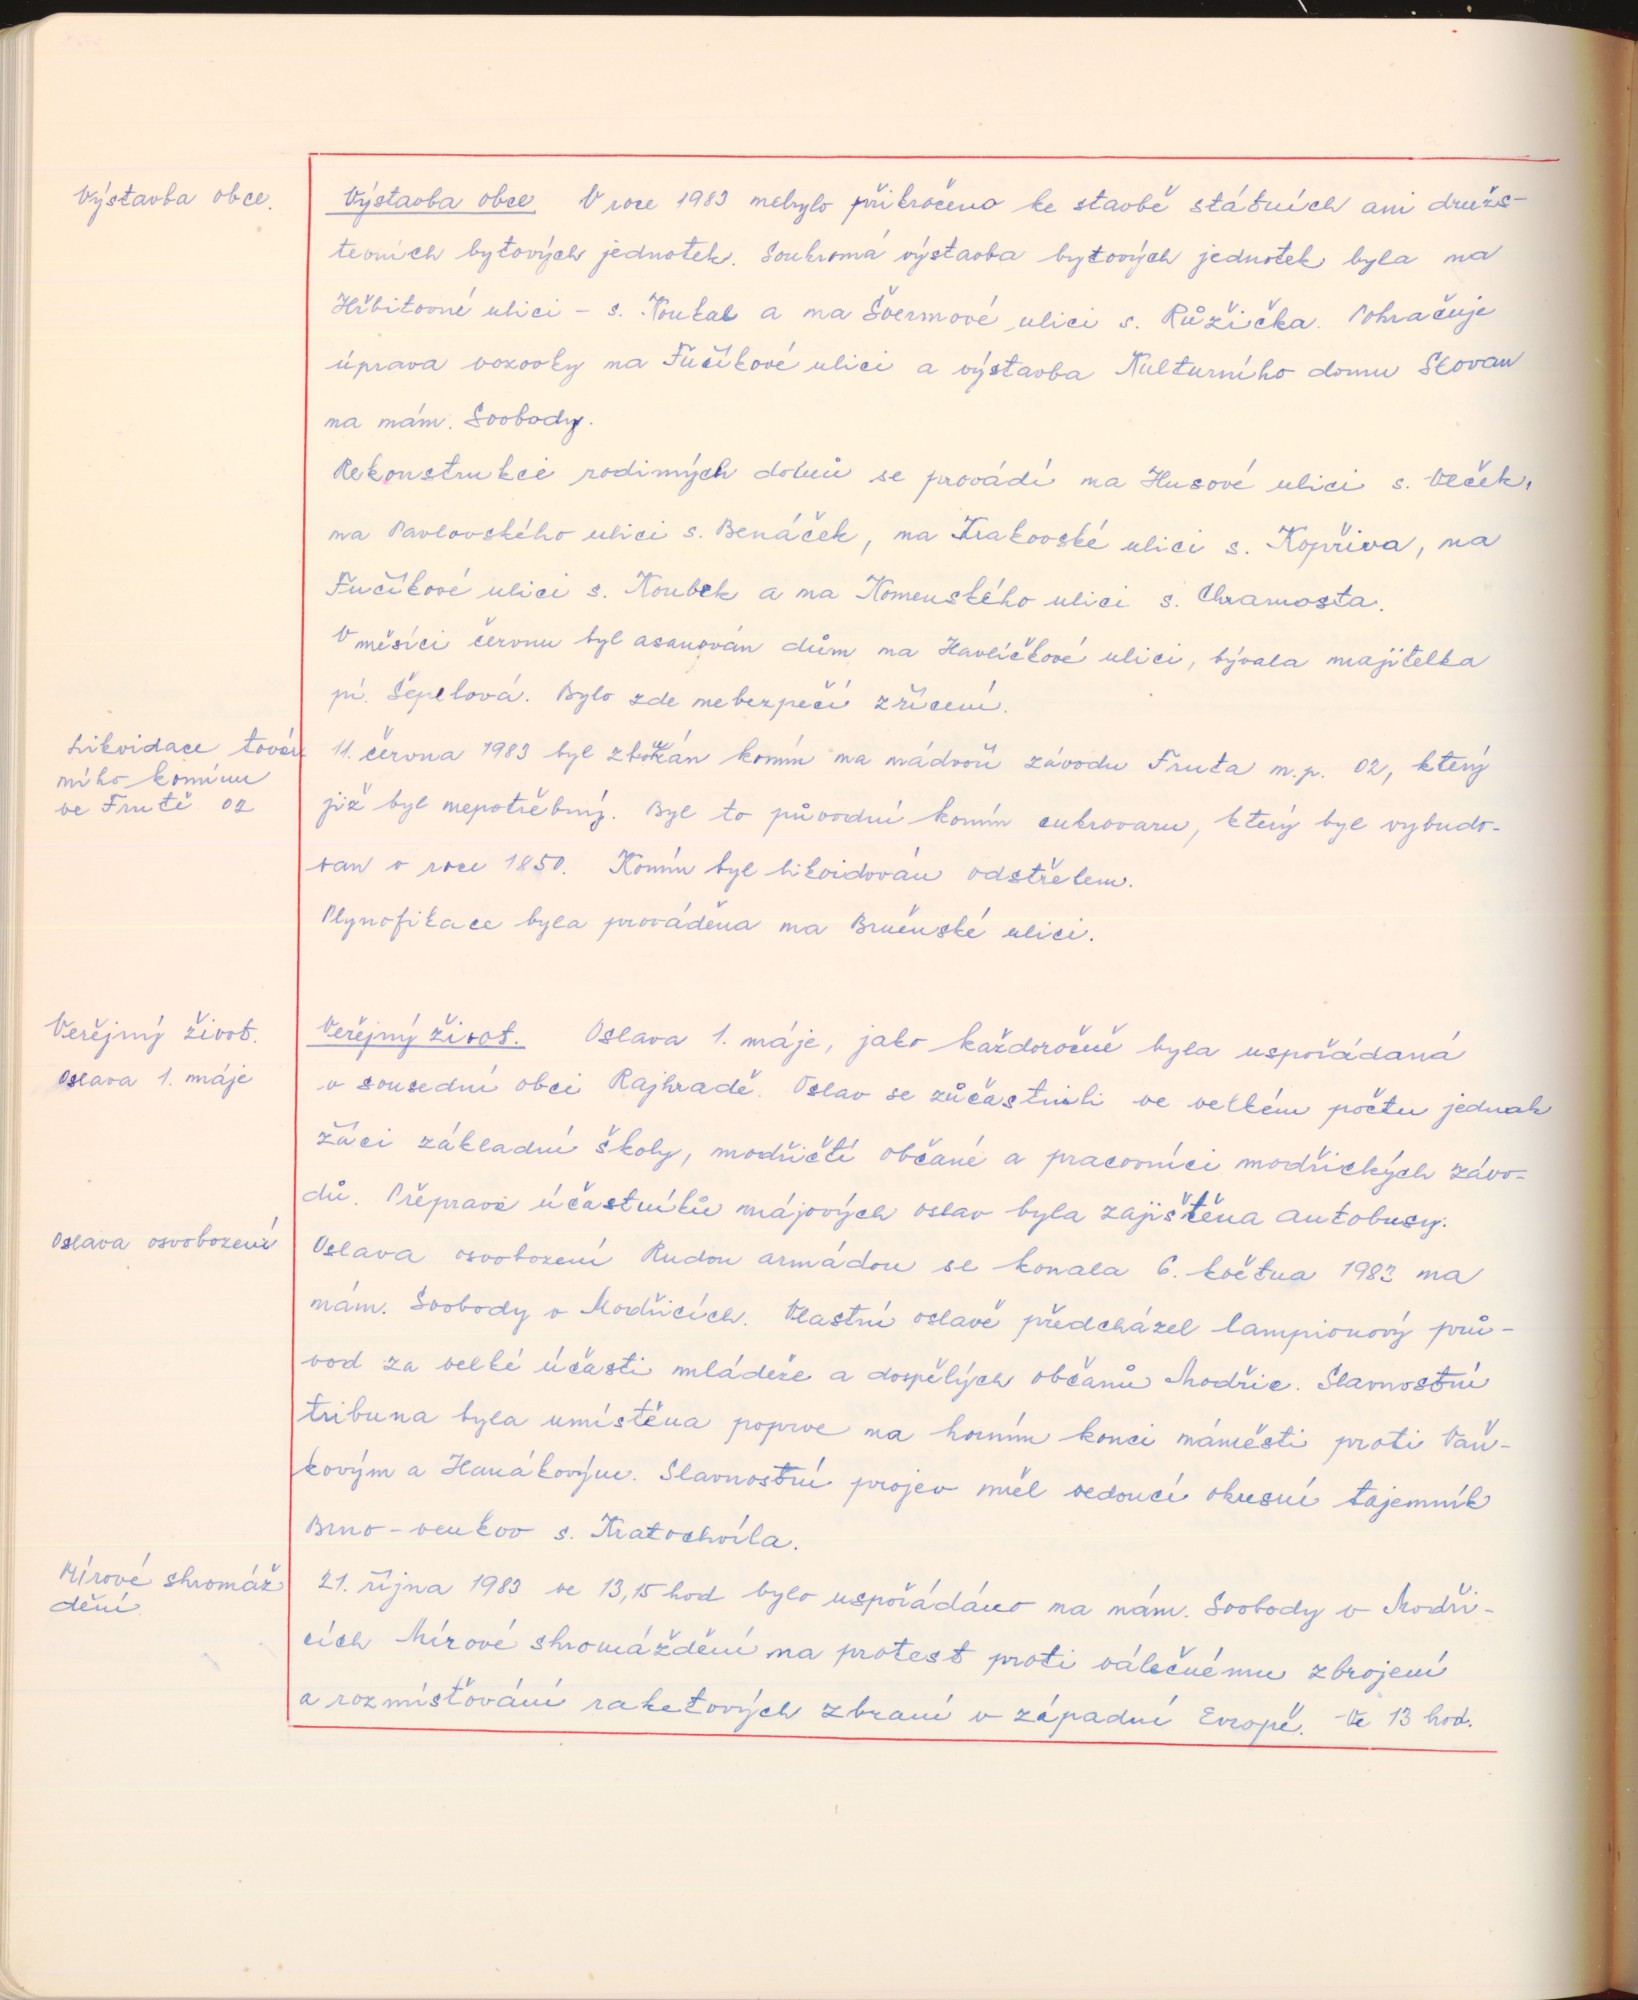 Výstavba obce.
Výstavba obce. V roce 1983 nebylo přikročeno ke stavbě státních ani družs-
tevních bytových jednotek. Soukromá výstavba bytových jednotek byla na
Hřbitovné ulici - s. Koukal a na Švermové ulici s. Růžička. Pokračuje
úprava vozovky na Fučíkové ulici a výstavba Kulturního domu Slovan
na nám. Svobody.
Rekonstrukce rodinných domů se provádí na Husové ulici s. Vlček,
na Pavlovského ulici s. Benáček, na Krakovské ulici s. Kopřiva, na
Fučíkové ulici s. Koubek a na Komenského ulici s. Chramosta.
V měsíci červnu byl asanován dům na Havlíčkové ulici, bývala majitelka
pí. Šepelová. Bylo zde nebezpečí zřícení.
Likvidace továr
ního komínu
ve Frutě 02
11. června 1983 byl zbořkán komín na nádvoří závodu Fruta n.p. 02, který
již byl nepotřebný. Byl to původní komín cukrovaru, který byl vybudo-
ван v roce 1850. Komín byl likvidován odstřelem.
Plynofikace byla prováděna na Brněnské ulici.
Veřejný život.
Oslava 1. máje
Veřejný život. Oslava 1. máje, jako každoročně byla uspořádaná
v sousední obci Rajhradě. Oslav se zůčastnili ve velkém počtu jednak
žáci základní školy, modřičtí občané a pracovníci modřických závo-
dů. Přeprava účastníků májových oslav byla zajištěna autobusy.
Oslava osvobození
Oslava osvobození Rudou armádou se konala 6. května 1983 na
nám. Svobody v Modřicích. Vlastní oslavě předcházel lampionový prů-
vod za velké účasti mládeže a dospělých občanů Modřic. Slavnostní
tribuna byla umístěna poprve na horním konci náměstí proti Vaň-
kovým a Hanákovým. Slavnostní projev měl vedoucí okresní tajemník
Brno-venkov s. Kratochvíla.
Mírové shromáž
dění
21. října 1983 ve 13,15 hod bylo uspořádáno na nám. Svobody v Modři-
cích Mírové shromáždění na protest proti válečnému zbrojení
a rozmisťování raketových zbraní v západní Evropě. Ve 13 hod.